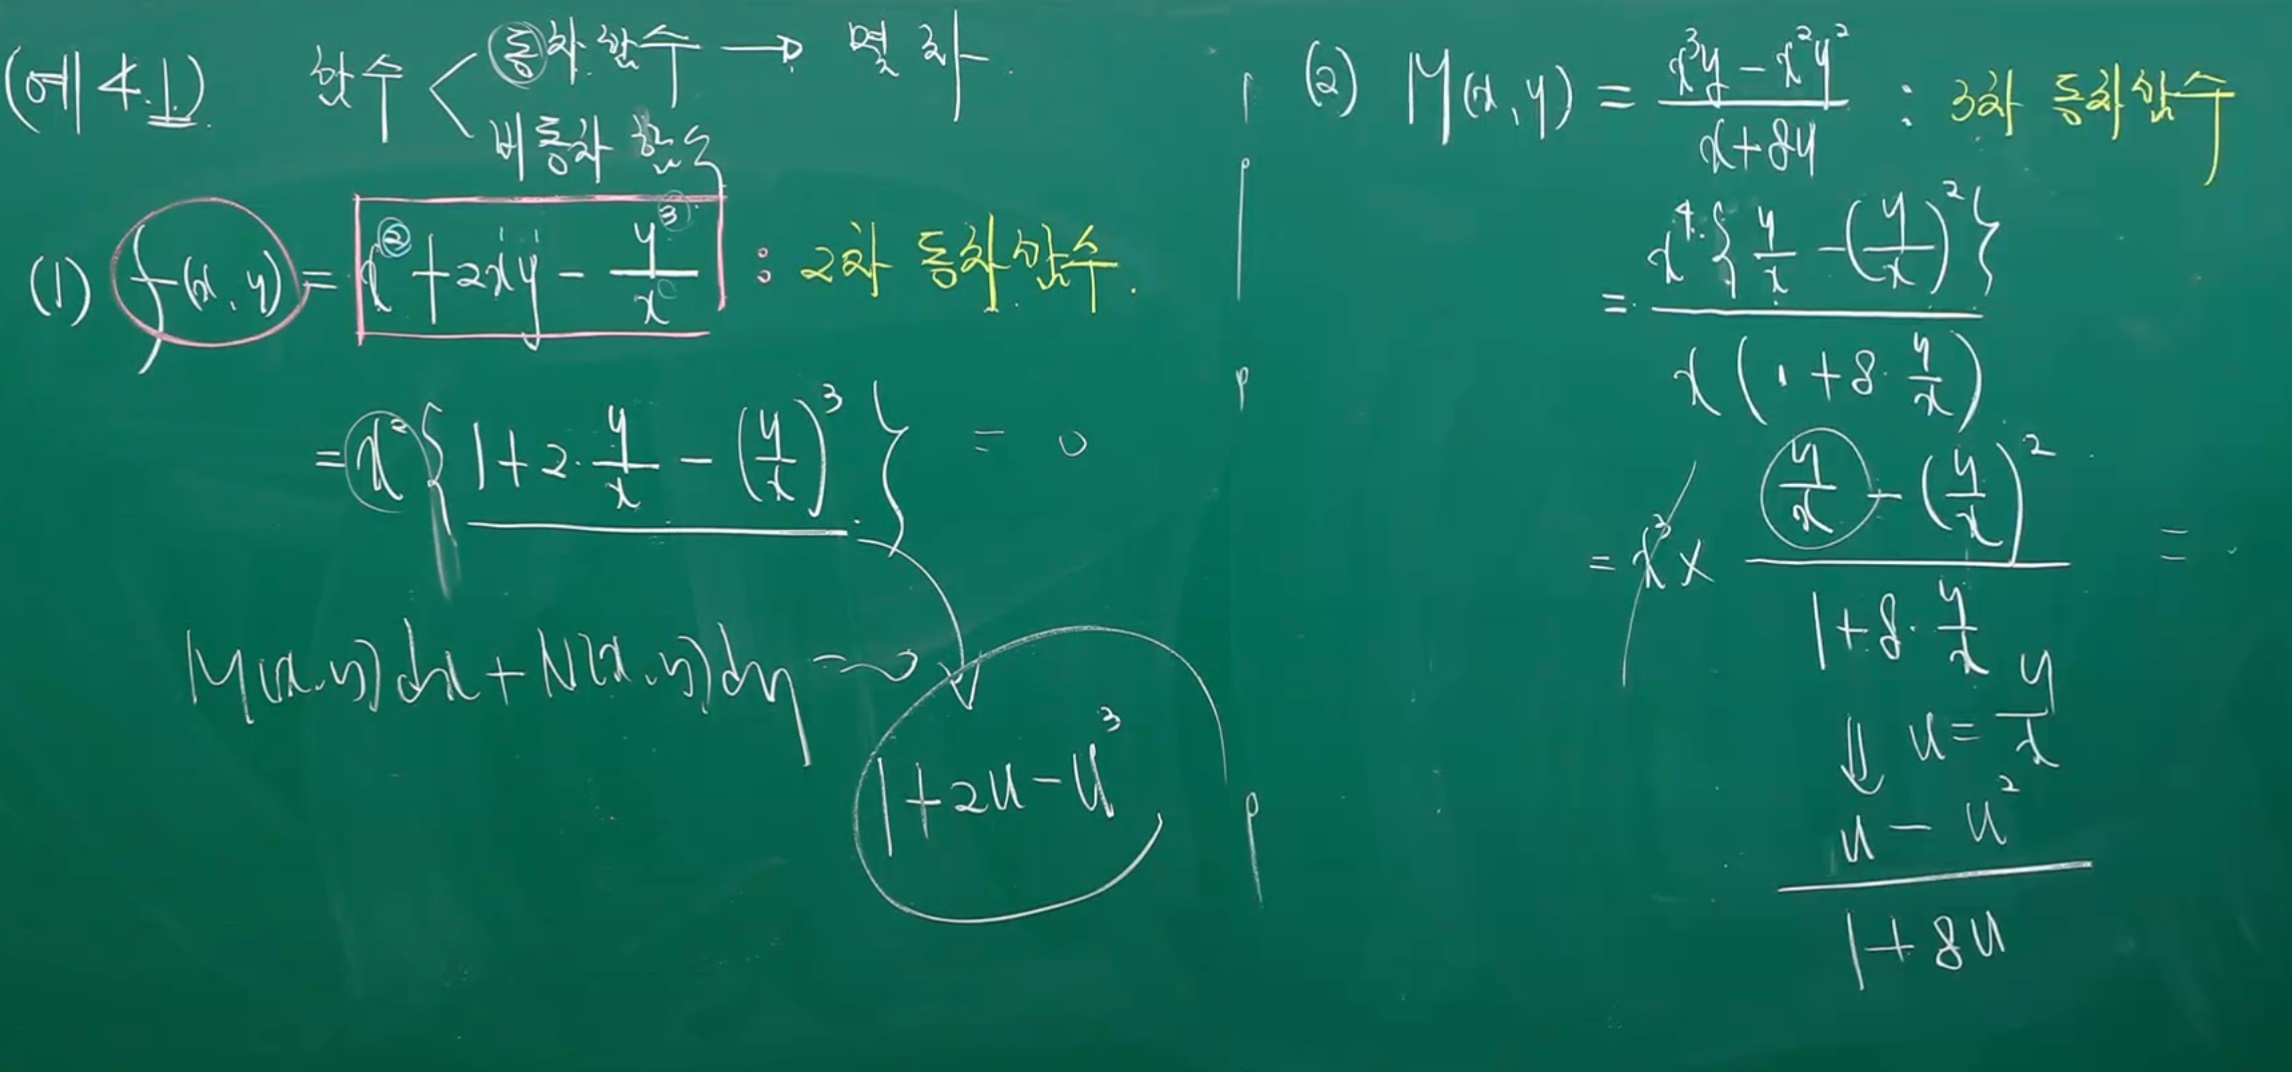 (예 4.1) 함수 < 동차함수 → 몇 차.
비동차 함수
(1) f(x, y) = x² + 2xy - y³/x : 2차 동차함수.
= x² { 1 + 2·y/x - (y/x)³ } = 0
M(x,y)dx + N(x,y)dy = 0
1 + 2u - u³
(2) M(x, y) = (x³y - x²y²)/(x + 8y) : 3차 동차함수
= x⁴·{ y/x - (y/x)² } / x(1 + 8·y/x)
= x³ × (y/x - (y/x)²)/(1 + 8·y/x) =
⇓ u = y/x
(u - u²)/(1 + 8u)